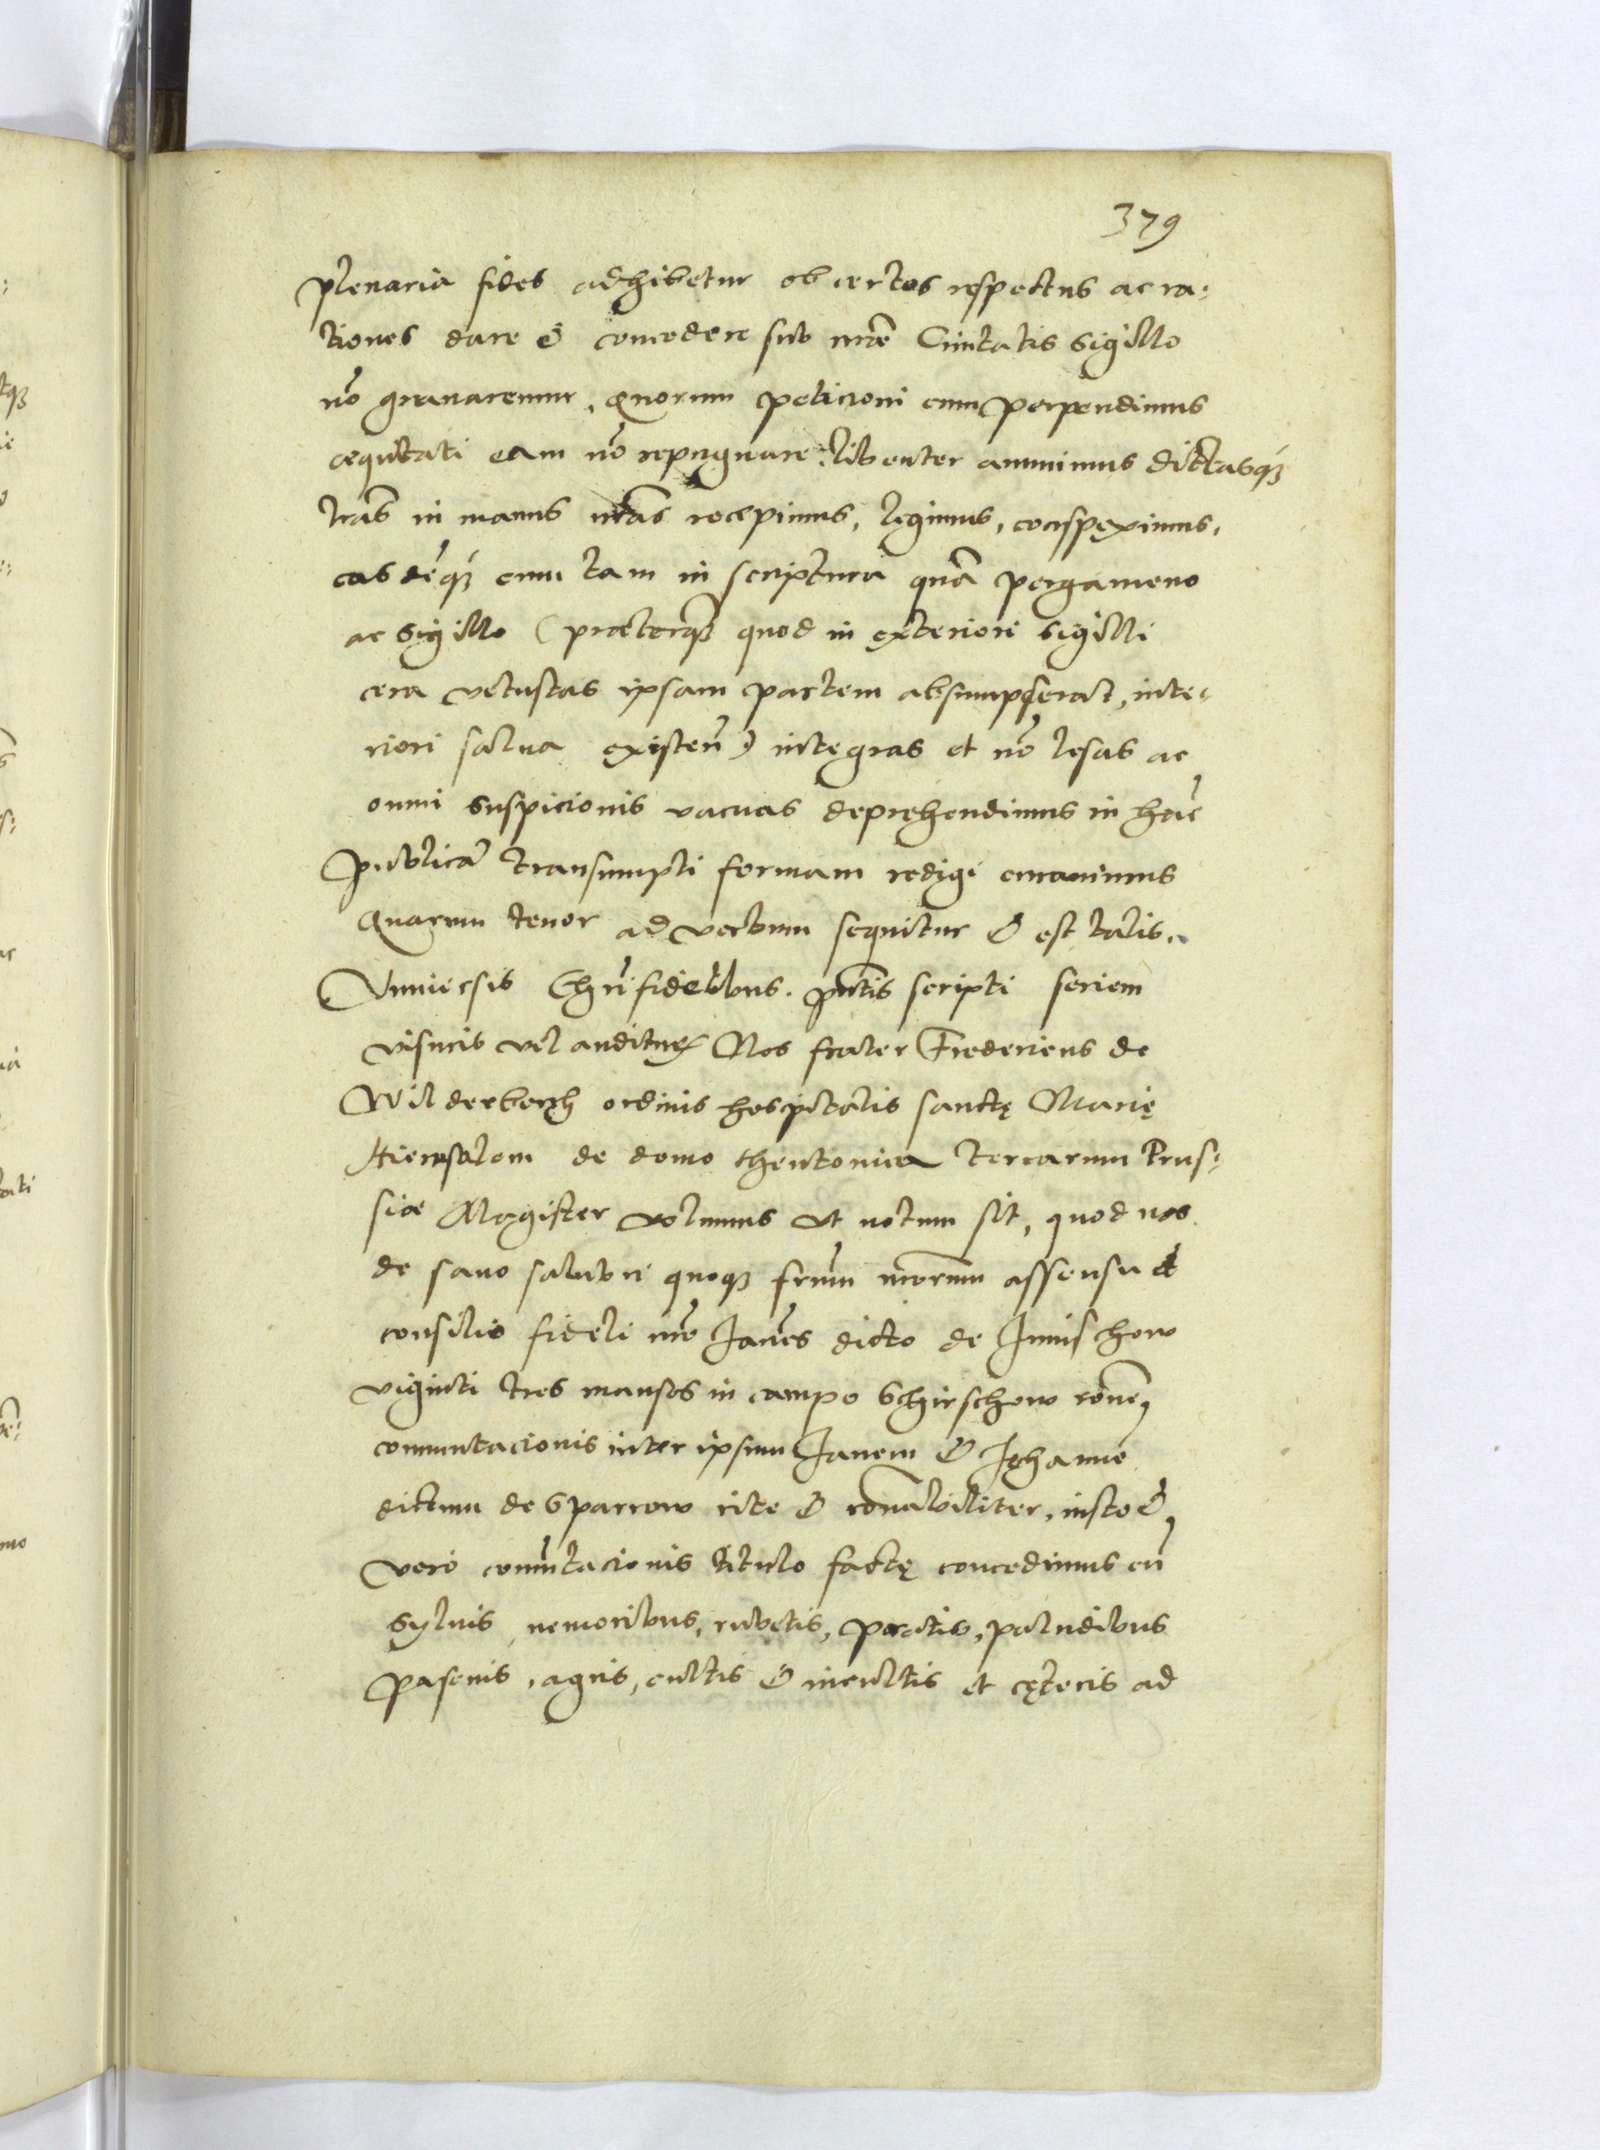 379
plenaria fides adhibetur ob certos respectus ac ra:
tiones dare & concedere sub nrae Ciuitatis Sigillo
nō grauaremur, Quorum peticioni cum perpendimus
aequitati eam nō repugnare: libenter annuimus dictasq́ꝫ
lrās in manus nrās recepimus, legimus, conspeximus,
easdēq́ꝫ cum tam in scriptura quā pergameno
ac Sigillo (praeterq̄ꝫ quod in exteriori Sigilli
cera vetustas ipsam partem absumpserat, inte-
riori salua existeñ) integras et nō lesas ac
omni suspicionis vacuas deprehendimus in hāc
publicā transumpti formam redigi curauimus
Quarum tenor ad verbum sequitur & est talis.
Vniuersis Chrī fidelibus. pn̄tis scripti seriem
visuris vel auditurꝭ Nos frater Fredericus de
Wilderberch ordinis hospitalis sanctę Marię
Hierusalem de domo theutonica terrarum Prus-
siae Magister volumus vt notum sit, quod nos
de sano salubri quoqꝫ frum nrorum assensu et
consilio fideli nrō Janes dicto de Jmischow
viginti tres mansos in campo Schirschow rōne
comutacionis inter ipsum Janem & Johannē
dictum de Sparrow rite & rōnabiliter, iusto &
vero comutacionis titulo factę concedimus cū
Syluis, nemoribus, rubetis, pratis, paludibus
pascuis, agris, cultis & incultis et cęteris ad